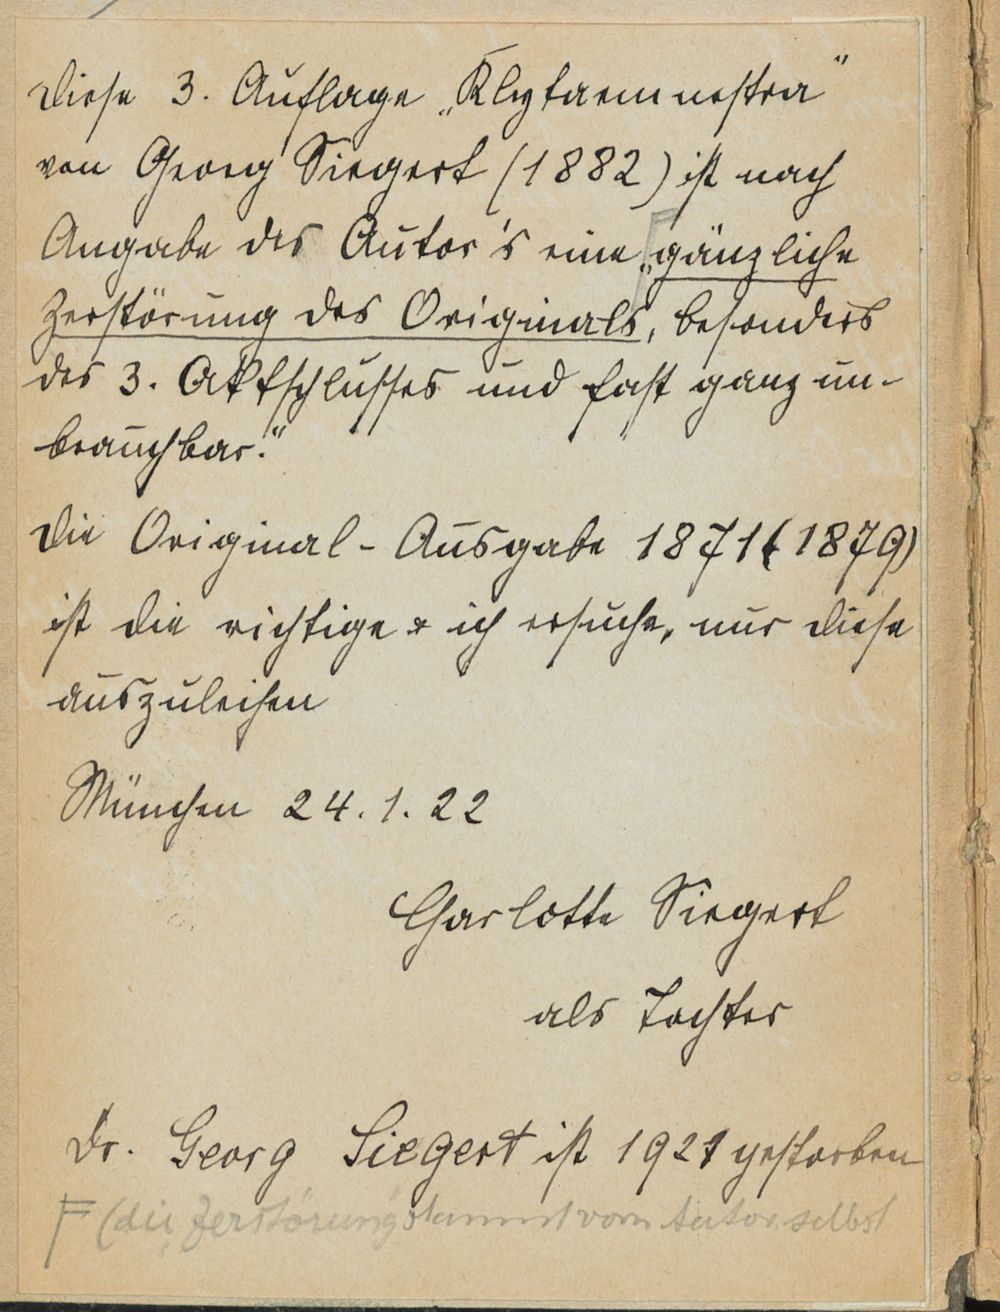 Diese 3. Auflage „Klytaemnestra“
von Georg Siegert (1882) ist nach
Angabe des Autor's eine „gänzliche
Zerstörung des Originals, besonders
des 3. Aktschlusses und fast ganz un-
brauchbar.“
Die Original-Ausgabe 1871 (1879)
ist die richtige & ich ersuche, nur diese
auszuleihen
München 24.1.22
Charlotte Siegert
als Tochter
Dr. Georg Siegert ist 1921 gestorben
F (die Zerstörung stammt vom Autor selbst